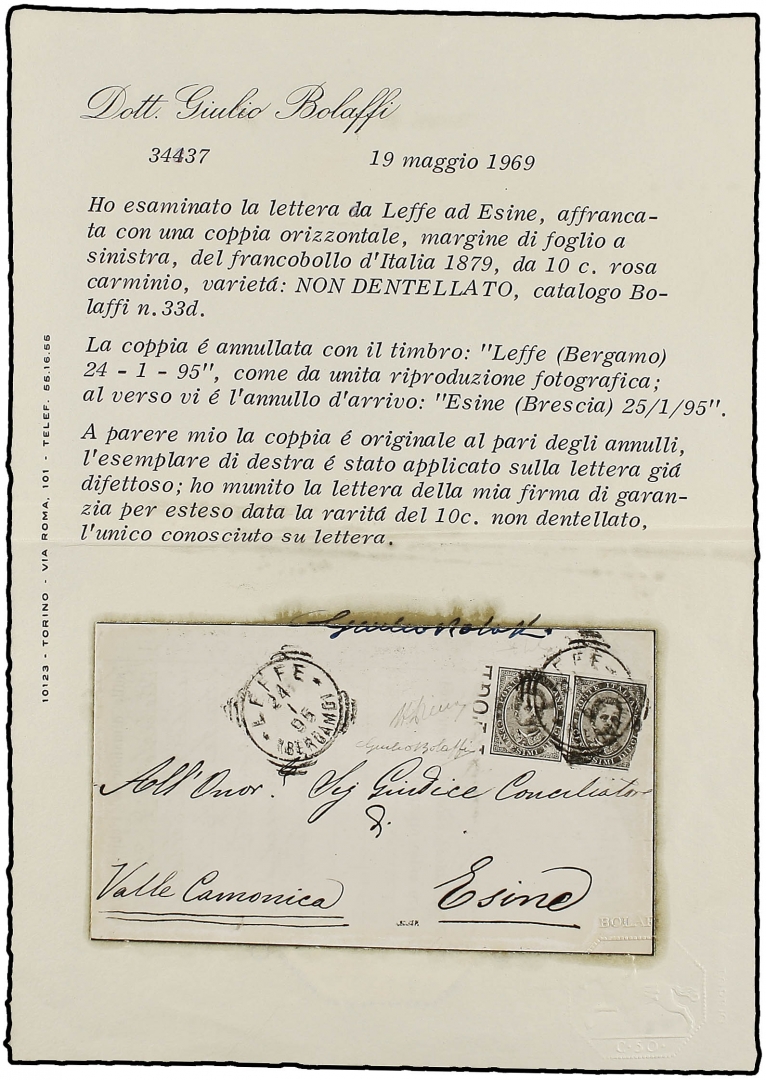 Dott. Giulio Bolaffi
34437 19 maggio 1969
Ho esaminato la lettera da Leffe ad Esine, affranca-
ta con una coppia orizzontale, margine di foglio a
sinistra, del francobollo d'Italia 1879, da 10 c. rosa
carminio, varietá: NON DENTELLATO, catalogo Bo-
laffi n. 33d.
La coppia é annullata con il timbro: "Leffe (Bergamo)
24 - 1 - 95", come da unita riproduzione fotografica;
al verso vi é l'annullo d'arrivo: "Esine (Brescia) 25/1/95".
A parere mio la coppia é originale al pari degli annulli,
l'esemplare di destra é stato applicato sulla lettera giá
difettoso; ho munito la lettera della mia firma di garan-
zia per esteso data la raritá del 10c. non dentellato,
l'unico conosciuto su lettera.
10123 - TORINO - VIA ROMA, 101 - TELEF. 55.16.55
Giulio Bolaffi
LEFFE
24
1
95
(BERGAMO)
Giulio Bolaffi
LEFFE
All'Onor. Sig Giudice Conciliatore
di
Valle Camonica
Esine
BOLAF